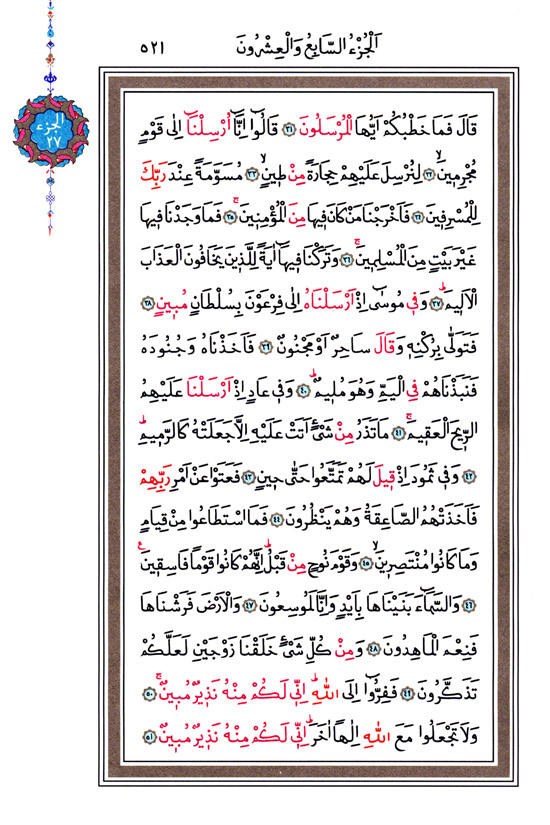 اَلْجُزْءُ السَّابِعُ وَالْعِشْرُونَ
٥٢١
الجزء
٢٧
قَالَ فَمَا خَطْبُكُمْ اَيُّهَا الْمُرْسَلُونَ ﴿٣١﴾ قَالُٓوا اِنَّٓا اُرْسِلْنَٓا اِلٰى قَوْمٍ
مُجْرِم۪ينَۙ ﴿٣٢﴾ لِنُرْسِلَ عَلَيْهِمْ حِجَارَةً مِنْ ط۪ينٍۙ ﴿٣٣﴾ مُسَوَّمَةً عِنْدَ رَبِّكَ
لِلْمُسْرِف۪ينَ ﴿٣٤﴾ فَاَخْرَجْنَا مَنْ كَانَ ف۪يهَا مِنَ الْمُؤْمِن۪ينَۚ ﴿٣٥﴾ فَمَا وَجَدْنَا ف۪يهَا
غَيْرَ بَيْتٍ مِنَ الْمُسْلِم۪ينَۚ ﴿٣٦﴾ وَتَرَكْنَا ف۪يهَٓا اٰيَةً لِلَّذ۪ينَ يَخَافُونَ الْعَذَابَ
الْاَل۪يمَۜ ﴿٣٧﴾ وَف۪ي مُوسٰٓى اِذْ اَرْسَلْنَاهُ اِلٰى فِرْعَوْنَ بِسُلْطَانٍ مُب۪ينٍ ﴿٣٨﴾
فَتَوَلّٰى بِرُكْنِه۪ وَقَالَ سَاحِرٌ اَوْ مَجْنُونٌ ﴿٣٩﴾ فَاَخَذْنَاهُ وَجُنُودَهُ
فَنَبَذْنَاهُمْ فِي الْيَمِّ وَهُوَ مُل۪يمٌۜ ﴿٤٠﴾ وَف۪ي عَادٍ اِذْ اَرْسَلْنَا عَلَيْهِمُ
الرّ۪يحَ الْعَق۪يمَۚ ﴿٤١﴾ مَا تَذَرُ مِنْ شَيْءٍ اَتَتْ عَلَيْهِ اِلَّا جَعَلَتْهُ كَالرَّم۪يمِۜ
﴿٤٢﴾ وَف۪ي ثَمُودَ اِذْ ق۪يلَ لَهُمْ تَمَتَّعُوا حَتّٰى ح۪ينٍ ﴿٤٣﴾ فَعَتَوْا عَنْ اَمْرِ رَبِّهِمْ
فَاَخَذَتْهُمُ الصَّاعِقَةُ وَهُمْ يَنْظُرُونَ ﴿٤٤﴾ فَمَا اسْتَطَاعُوا مِنْ قِيَامٍ
وَمَا كَانُوا مُنْتَصِر۪ينَۙ ﴿٤٥﴾ وَقَوْمَ نُوحٍ مِنْ قَبْلُۜ اِنَّهُمْ كَانُوا قَوْمًا فَاسِق۪ينَ۟
﴿٤٦﴾ وَالسَّمَٓاءَ بَنَيْنَاهَا بِاَيْدٍ وَاِنَّا لَمُوسِعُونَ ﴿٤٧﴾ وَالْاَرْضَ فَرَشْنَاهَا
فَنِعْمَ الْمَاهِدُونَ ﴿٤٨﴾ وَمِنْ كُلِّ شَيْءٍ خَلَقْنَا زَوْجَيْنِ لَعَلَّكُمْ
تَذَكَّرُونَ ﴿٤٩﴾ فَفِرُّٓوا اِلَى اللّٰهِۜ اِنّ۪ي لَكُمْ مِنْهُ نَذ۪يرٌ مُب۪ينٌۚ ﴿٥٠﴾
وَلَا تَجْعَلُوا مَعَ اللّٰهِ اِلٰهًا اٰخَرَۜ اِنّ۪ي لَكُمْ مِنْهُ نَذ۪يرٌ مُب۪ينٌ ﴿٥١﴾